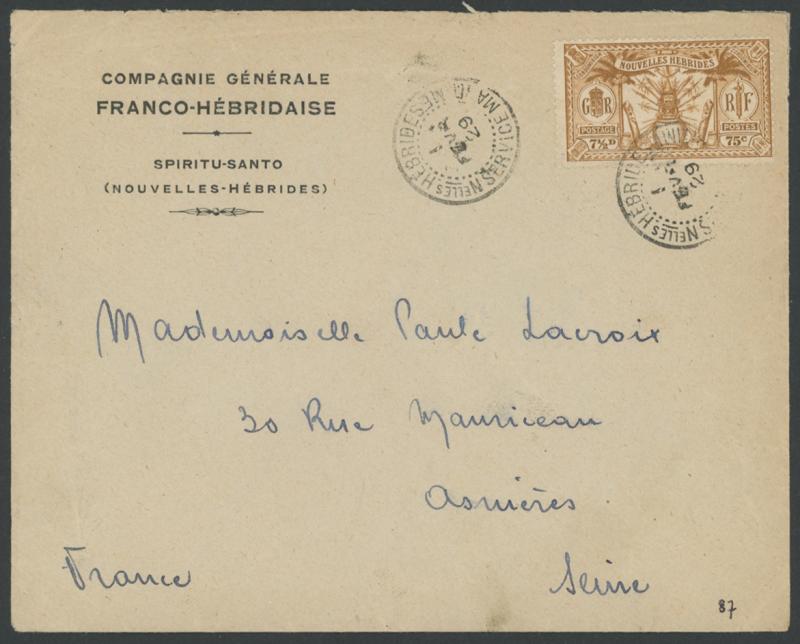 COMPAGNIE GÉNÉRALE
FRANCO-HÉBRIDAISE
SPIRITU-SANTO
(NOUVELLES-HÉBRIDES)
NOUVELLES HEBRIDES
G R
R F
POSTAGE
POSTES
7½D
75c
NELLES HEBRIDES
29
FEV
1
SERVICE MA
NELLES HEBRIDES
29
FEV
1
Mademoiselle Paule Lacroix
30 Rue Mauriceau
Asnières
France
Seine
87